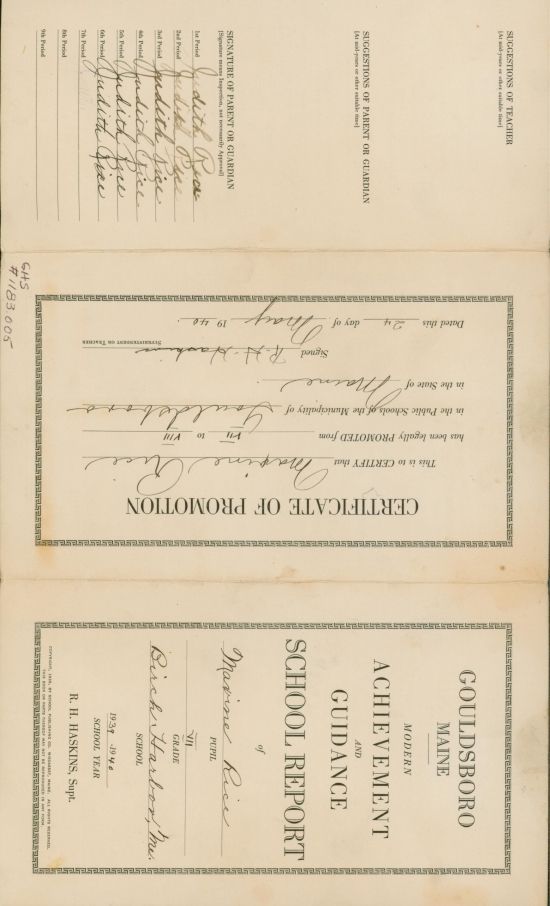 SUGGESTIONS OF TEACHER
[At mid-years or other suitable time]
SUGGESTIONS OF PARENT OR GUARDIAN
[At mid-years or other suitable time]
SIGNATURE OF PARENT OR GUARDIAN
[Signature means Inspection, not necessarily Approval]
1st Period Judith Rice
2nd Period Judith Rice
3rd Period Judith Rice
4th Period Judith Rice
5th Period Judith Rice
6th Period Judith Rice
7th Period
8th Period
9th Period
GHS
#1183005
CERTIFICATE OF PROMOTION
This is to CERTIFY that Maxine Rice
has been legally PROMOTED from VII to VIII
in the Public Schools of the Municipality of Gouldsboro
in the State of Maine
Signed R. H. Haskins
SUPERINTENDENT OR TEACHER
Dated this 24 day of May 1940
GOULDSBORO
MAINE
MODERN
ACHIEVEMENT
AND
GUIDANCE
SCHOOL REPORT
of
Maxine Rice
PUPIL
VII
GRADE
Birch Harbor, Me.
SCHOOL
1939-1940
SCHOOL YEAR
R. H. HASKINS, Supt.